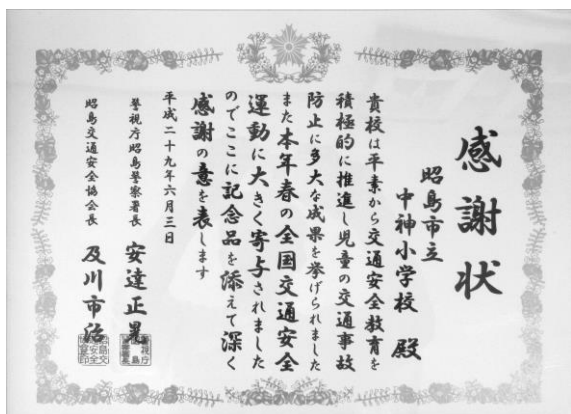 感謝状
昭島市立
中神小学校 殿
貴校は平素から交通安全教育を
積極的に推進し児童の交通事故
防止に多大な成果を挙げられました
また本年春の全国交通安全
運動に大きく寄与されました
のでここに記念品を添えて深く
感謝の意を表します
平成二十九年六月三日
警視庁昭島警察署長 安達正晃
昭島交通安全協会長 及川市治